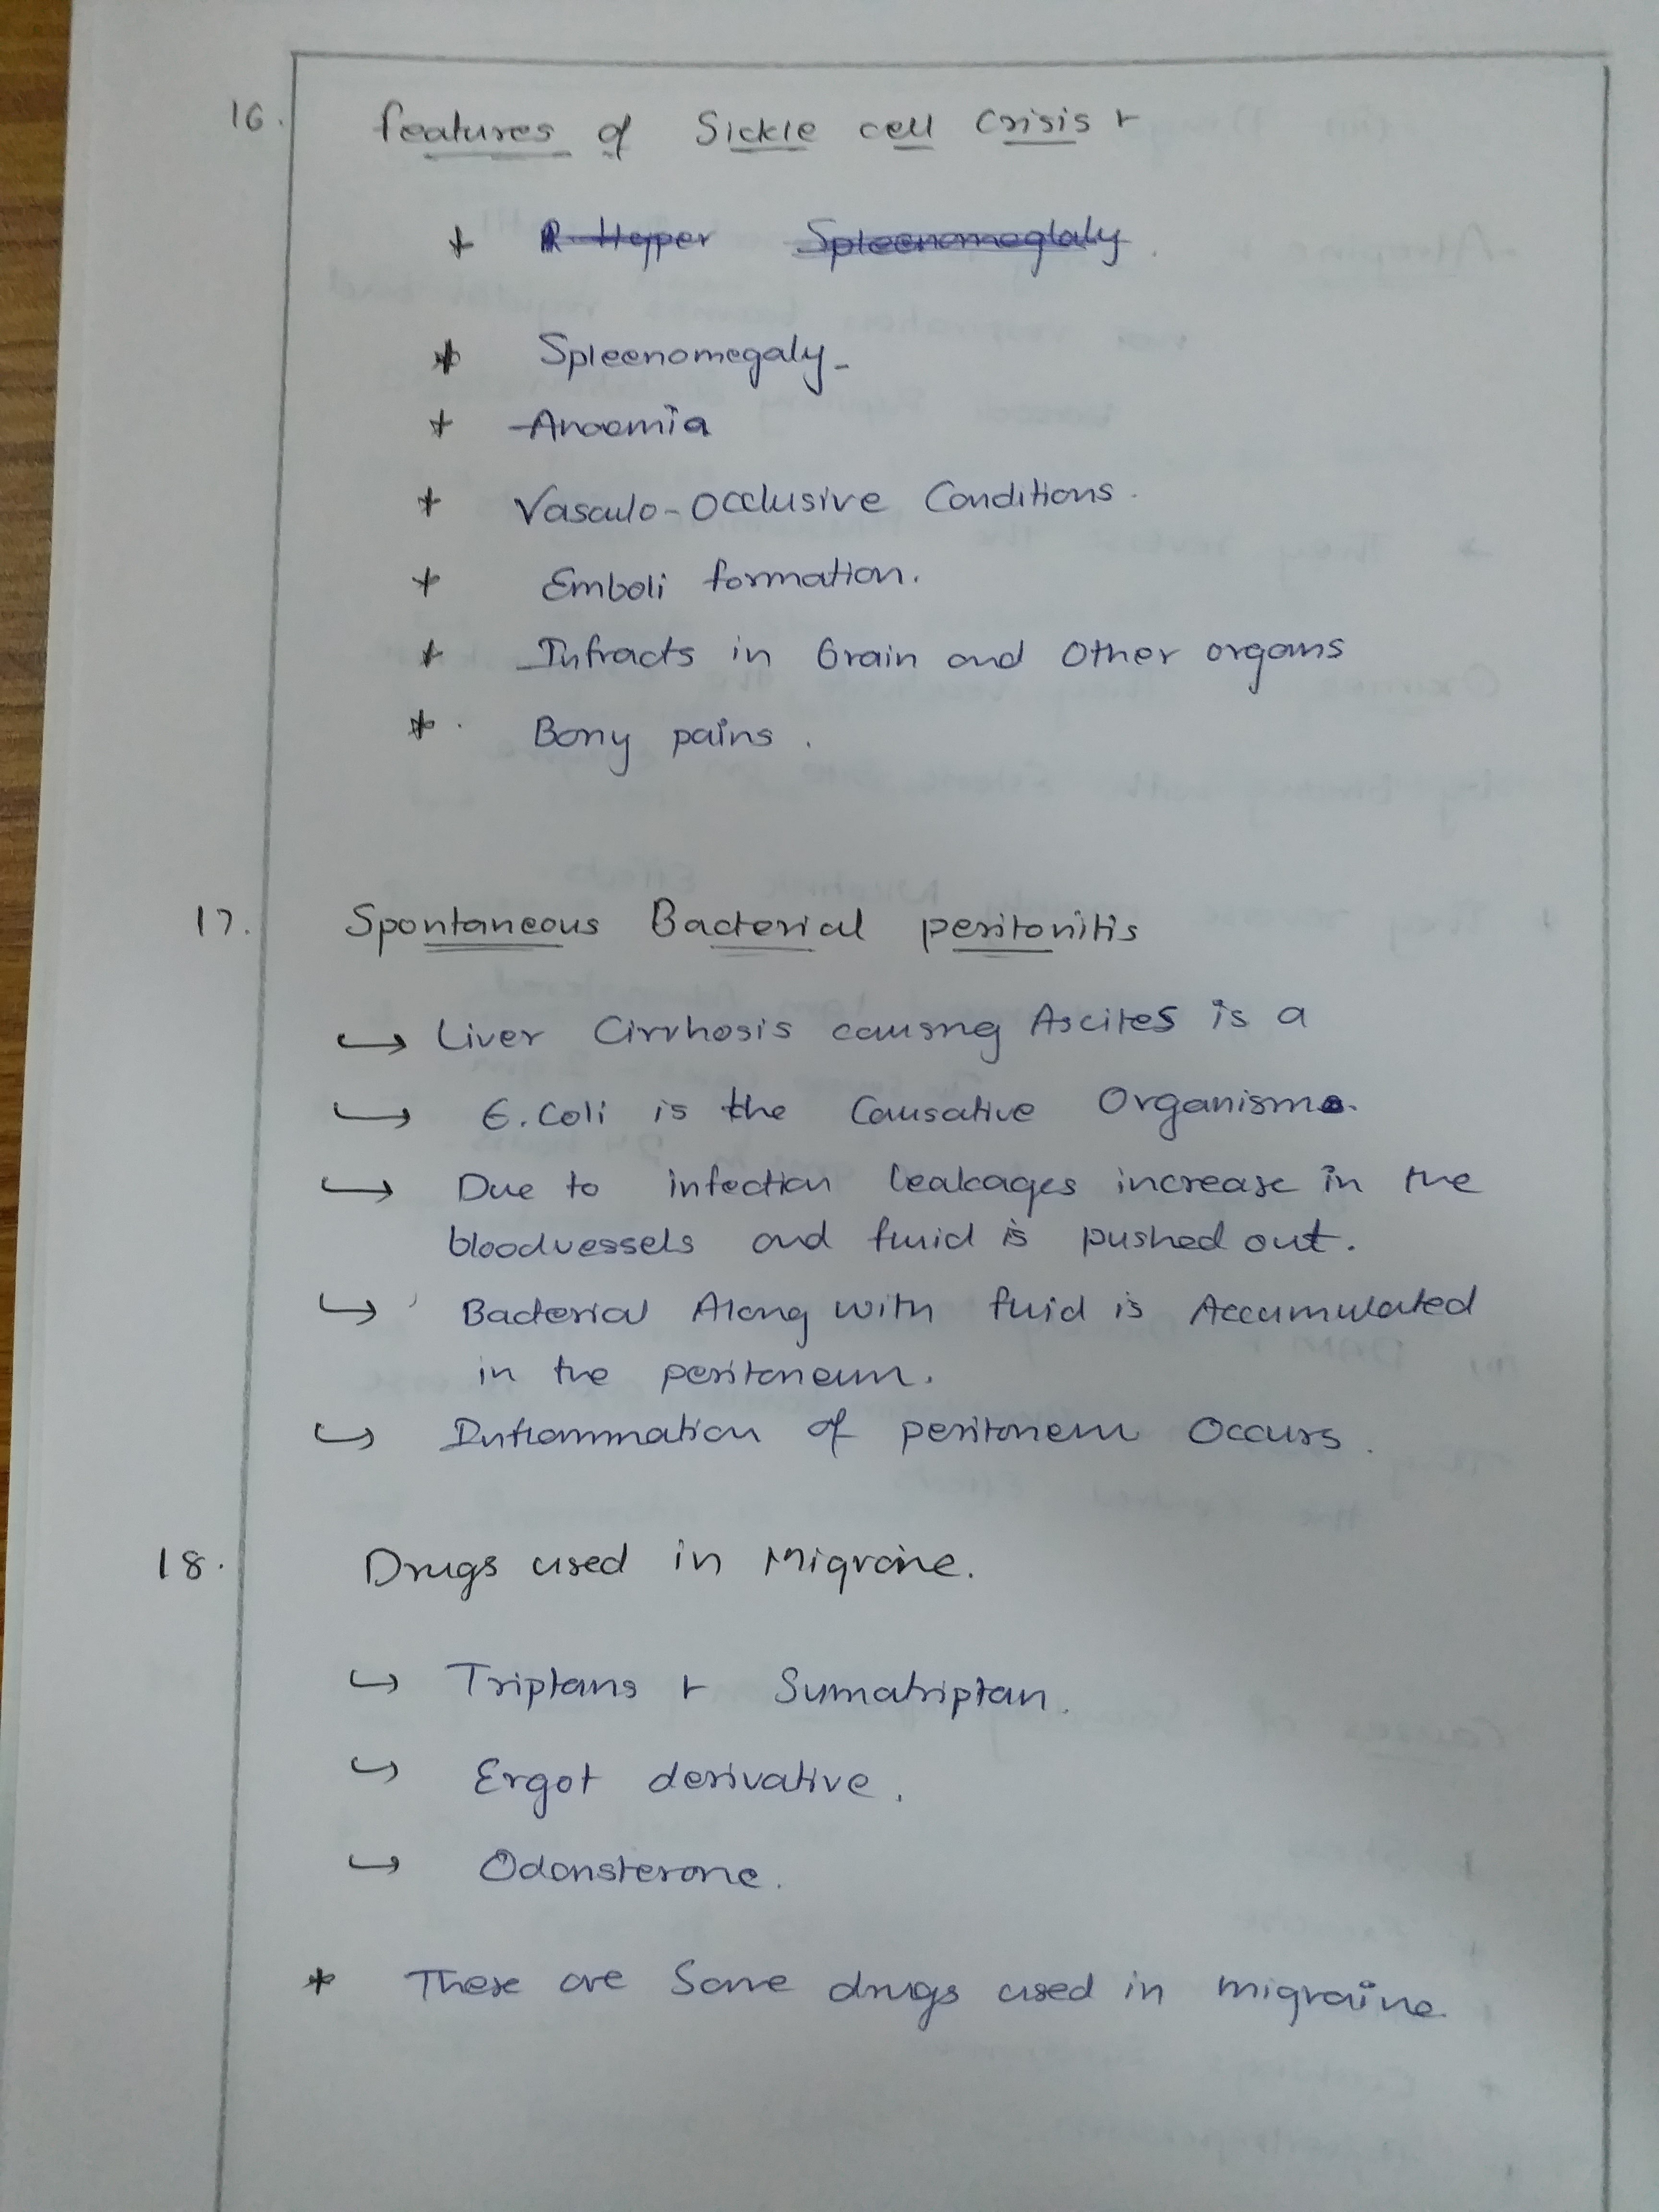 16. Features of Sickle cell Crisis
Hyper Spleenomeglaly.
* Spleenomegaly
+ Anaemia
+ Vasculo-Occlusive Conditions.
+ Emboli formation.
+ Infracts in Brain and Other organs
* Bony pains.
17. Spontaneous Bacterial peritonitis
↪ Liver Cirrhosis causing Ascites is a
↪ E.Coli is the Causative Organism.
↪ Due to infection leakages increase in the
bloodvessels and fluid is pushed out.
↪ Bacterial Along with fluid is Accumulated
in the peritoneum.
↪ Inflammation of peritonem Occurs.
18. Drugs used in Migraine.
↪ Triptans Sumatriptan.
↪ Ergot derivative.
↪ Odansterone.
* These are Some drugs used in migraine